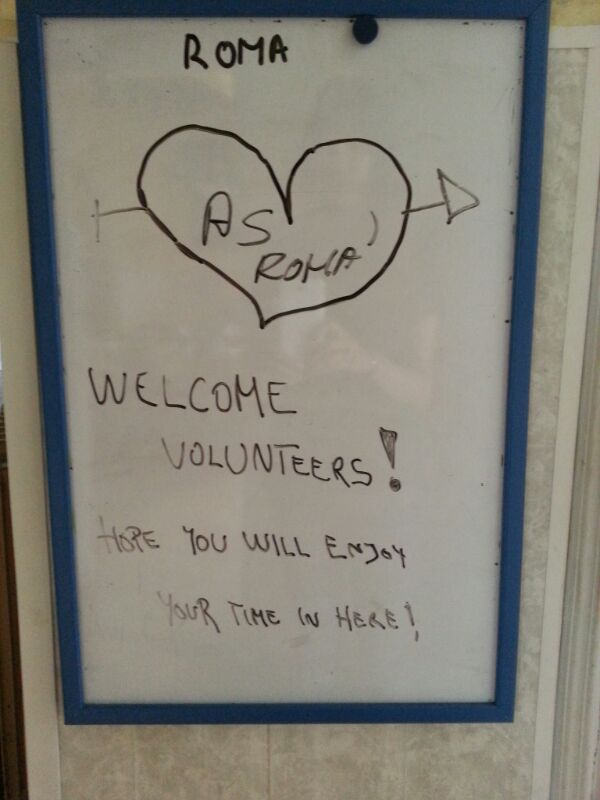 ROMA
AS
ROMA
WELCOME
VOLUNTEERS!
HOPE YOU WILL ENJOY
YOUR TIME IN HERE!